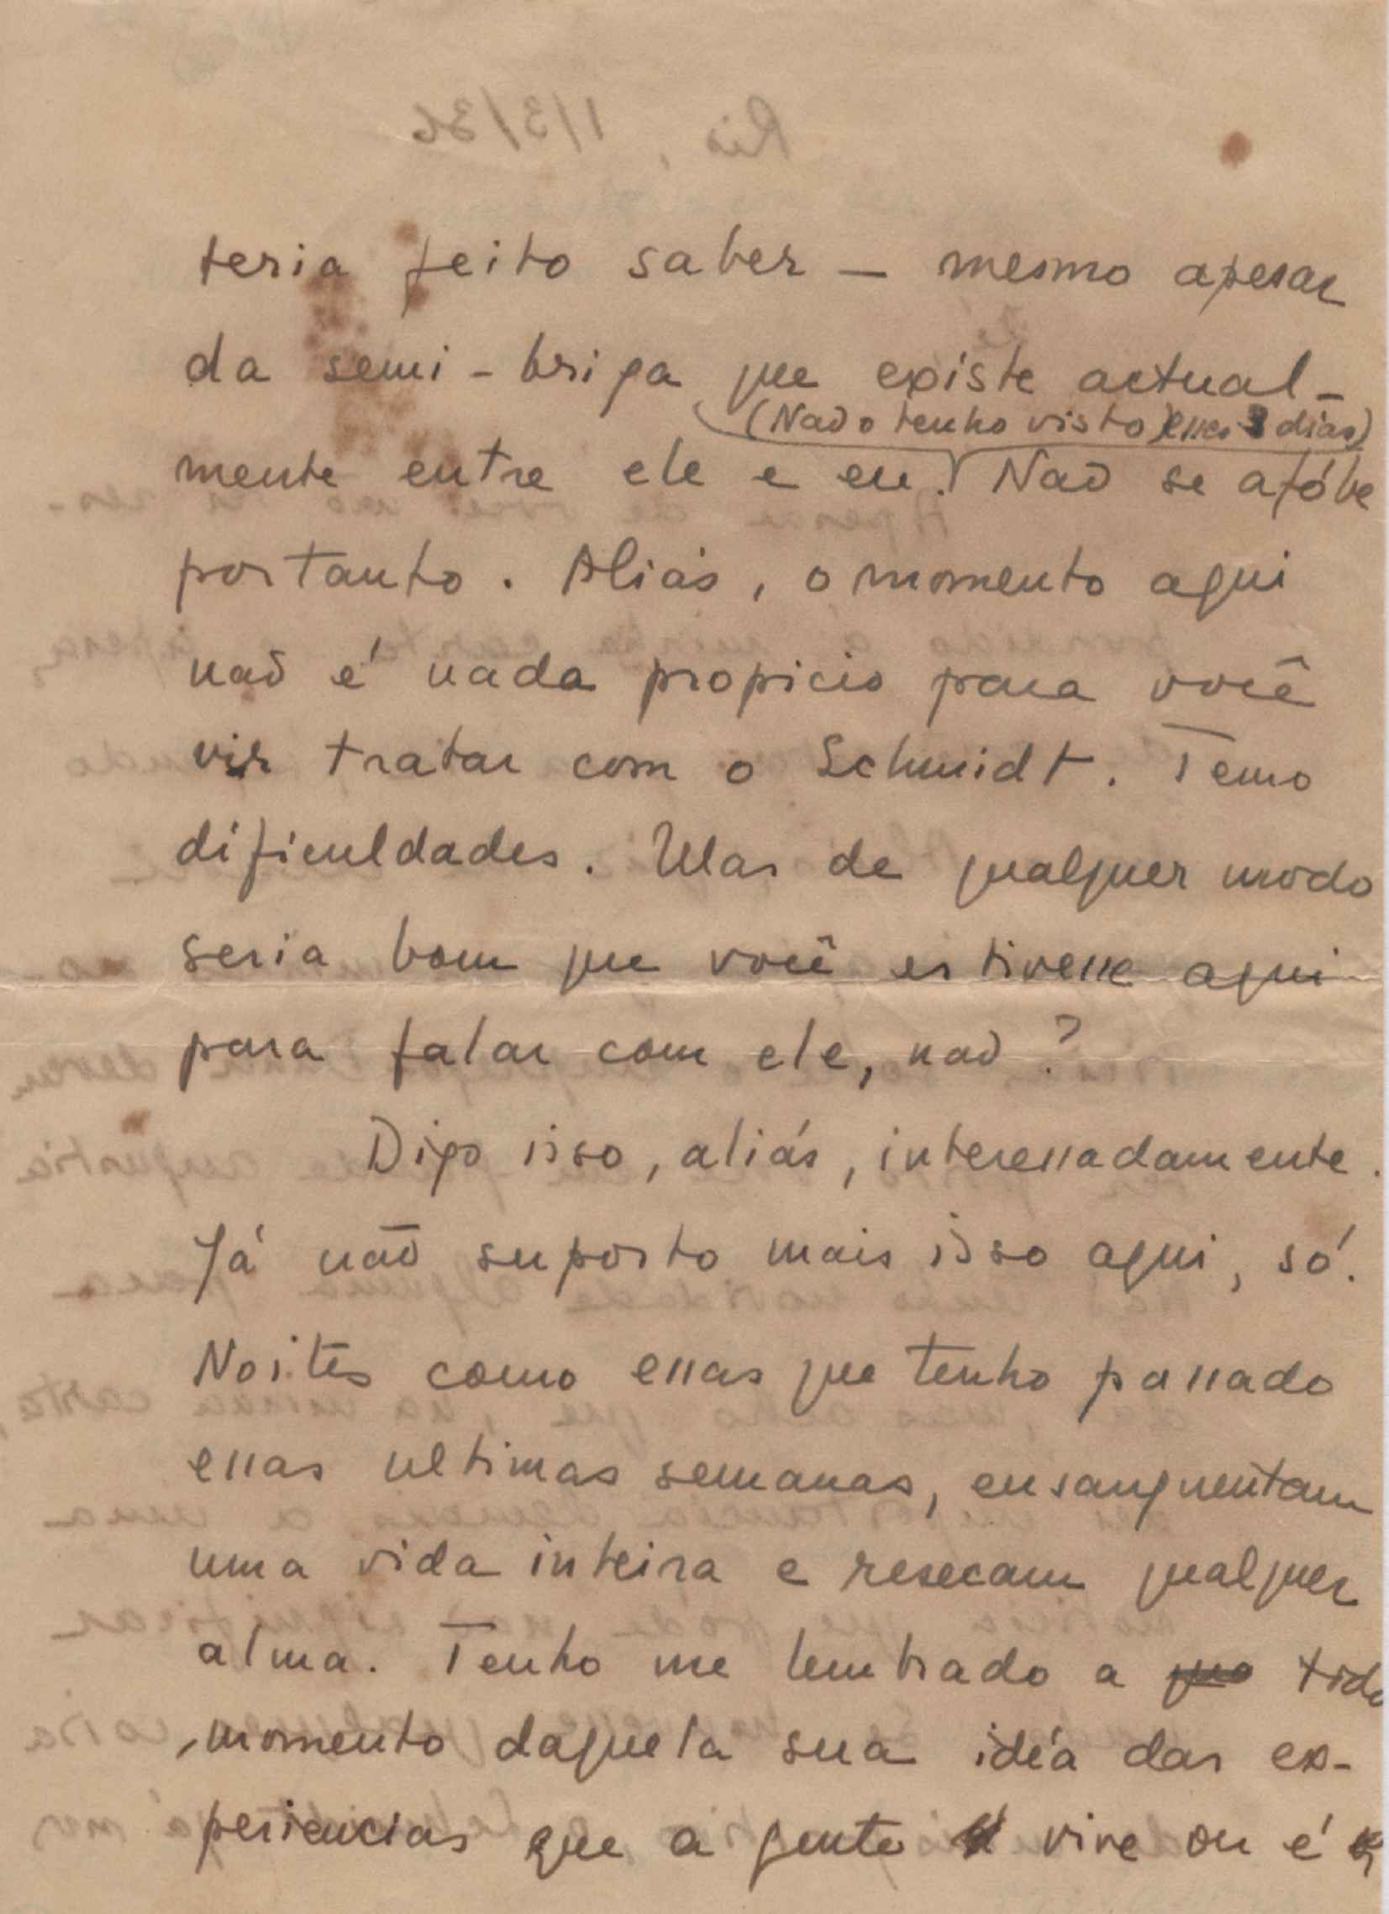 teria feito saber — mesmo apesar
da semi-briga que existe actual-
(Não o tenho visto esses 3 dias)
mente entre ele e eu. Não se afóbe
portanto. Aliás, o momento aqui
não é nada propicio para você
vir tratar com o Schmidt. Temo
dificuldades. Mas de qualquer modo
seria bom que você estivesse aqui
para falar com ele, não?
Digo isso, aliás, interessadamente.
Já não suporto mais isso aqui, só.
Noites como essas que tenho passado
essas ultimas semanas, ensanguentam
uma vida inteira e resecam qualquer
alma. Tenho me lembrado a todo
momento daquela sua idéa das ex-
periencias que a gente vive ou é